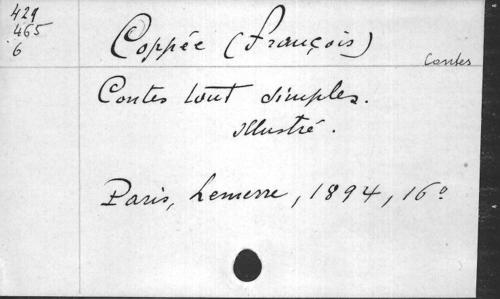 429
465
6
Coppée (François)
Contes
Contes tout simples.
illustré.
Paris, Lemerre, 1894, 16º